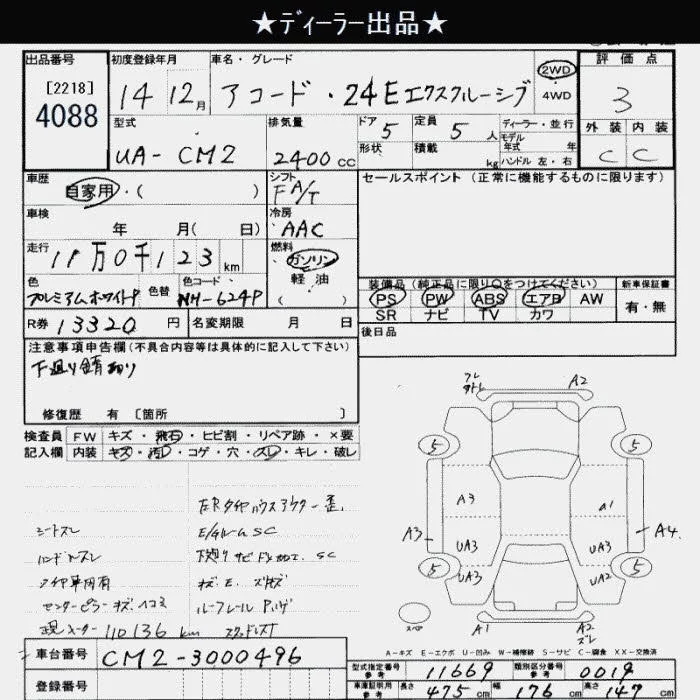 ★ディーラー出品★
出品番号 初度登録年月 車名・グレード 評価点
[2218]
4088
14 12月 アコード・24Eエクスクルーシブ 2WD 4WD 3
外装 内装
C C
型式 排気量 ドア 定員 ディーラー・並行
UA-CM2 2400CC 5 5人 モデル年式 年
形状 積載 kg ハンドル 左・右
車歴 シフト セールスポイント(正常に機能するものに限ります)
自家用・( ) FA/T
車検 冷房
年 月( 日) AAC
走行 燃料
11万0千123km ガソリン
軽油
( )
色 色替 色コード
プレミアムホワイトP NH-624P
装備品(純正品に限り○をつけてください) 新車保証書
PS PW ABS エアB AW 有・無
SR ナビ TV カワ
R券 13320円 名変期限 月 日 後日品
注意事項申告欄(不具合内容等は具体的に記入して下さい)
下廻り錆あり
修復歴 有 〔箇所 〕
検査員 FW キズ・飛石・ヒビ割・リペア跡・×要
記入欄 内装 キズ・汚レ・コゲ・穴・スレ・キレ・破レ
シートスレ E/ルーム SC
センターピラーキズ、ヘコミ
現メーター110136km
A2
5 5
A3 a1
A3 UA3 UA3 A4
5 UA3 UA2 5
スペア A1 A2
スレ
A-キズ E-エクボ U-凹み W-補修跡 S-サビ C-腐食 XX-交換済
車台番号 CM2-3000496
型式指定番号 参考 11669 類別区分番号 参考 0019
登録番号 車庫証明用 参考 長さ 475cm 幅 176cm 高さ 147cm